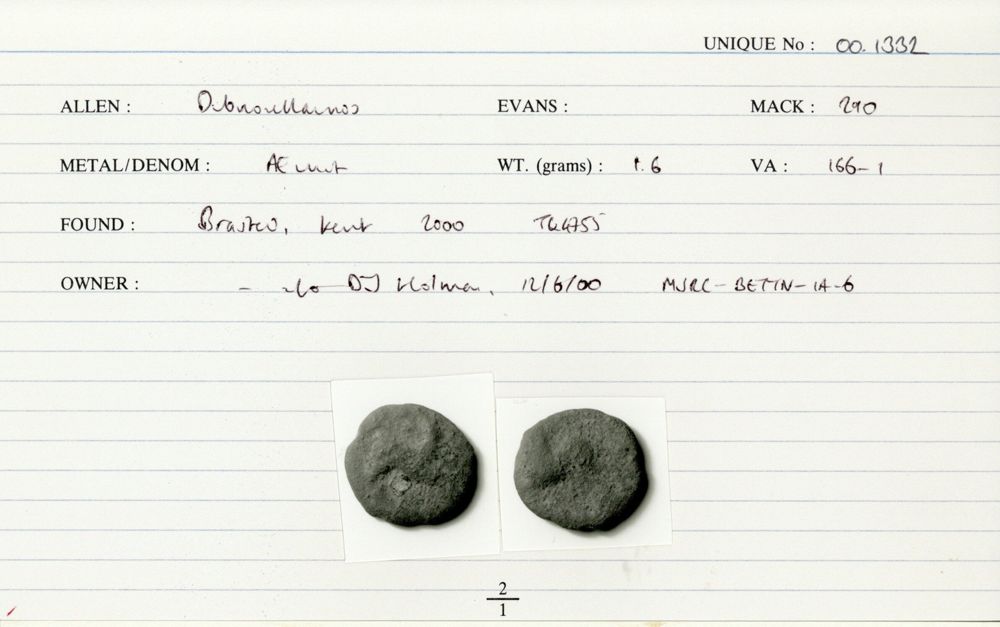 UNIQUE No : 00.1332
ALLEN : Dubnovellaunos EVANS : MACK : 290
METAL/DENOM : AE unit WT. (grams) : 1.6 VA : 166-1
FOUND : Brasted, Kent 2000 TQ4755
OWNER : - DJ Holman, 12/6/00 MJRC-BETIN-IA-6
2
1